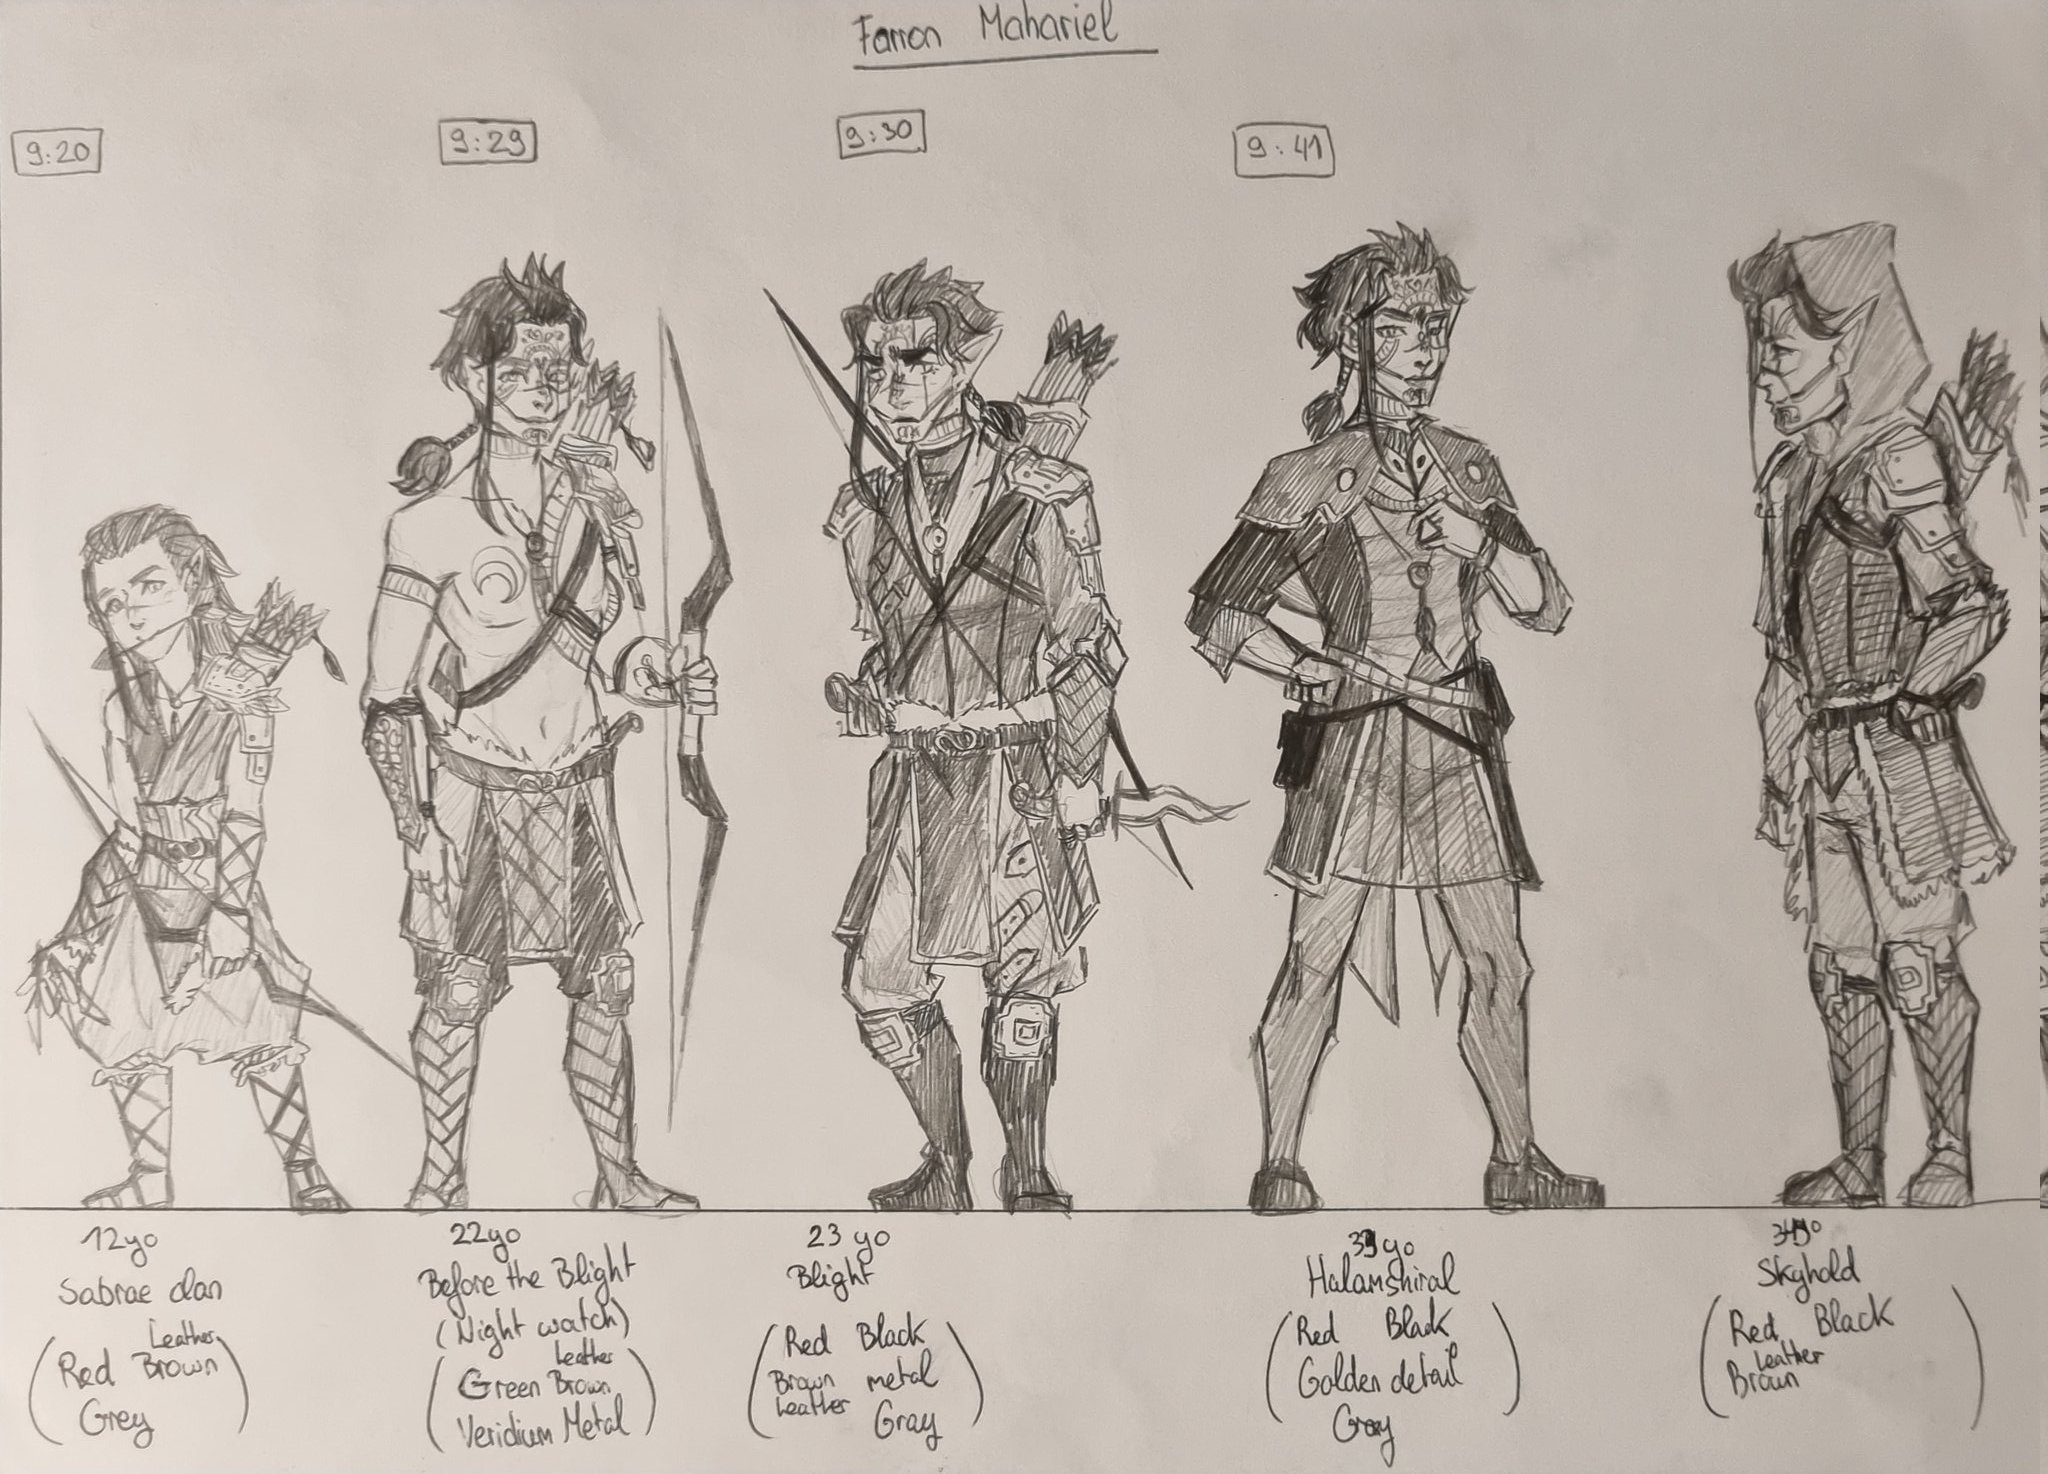 Farron Mahariel
9:20
9:29
9:30
9:41
12yo
Sabrae clan
Leather
Red Brown
Grey
22yo
Before the Blight
(Night watch)
Leather
Green Brown
Veridium Metal
23 yo
Blight
Red Black
Brown metal
Leather Gray
yo
Halamshiral
Red Black
Golden detail
Gray
34yo
Skyhold
Red Black
Leather
Brown